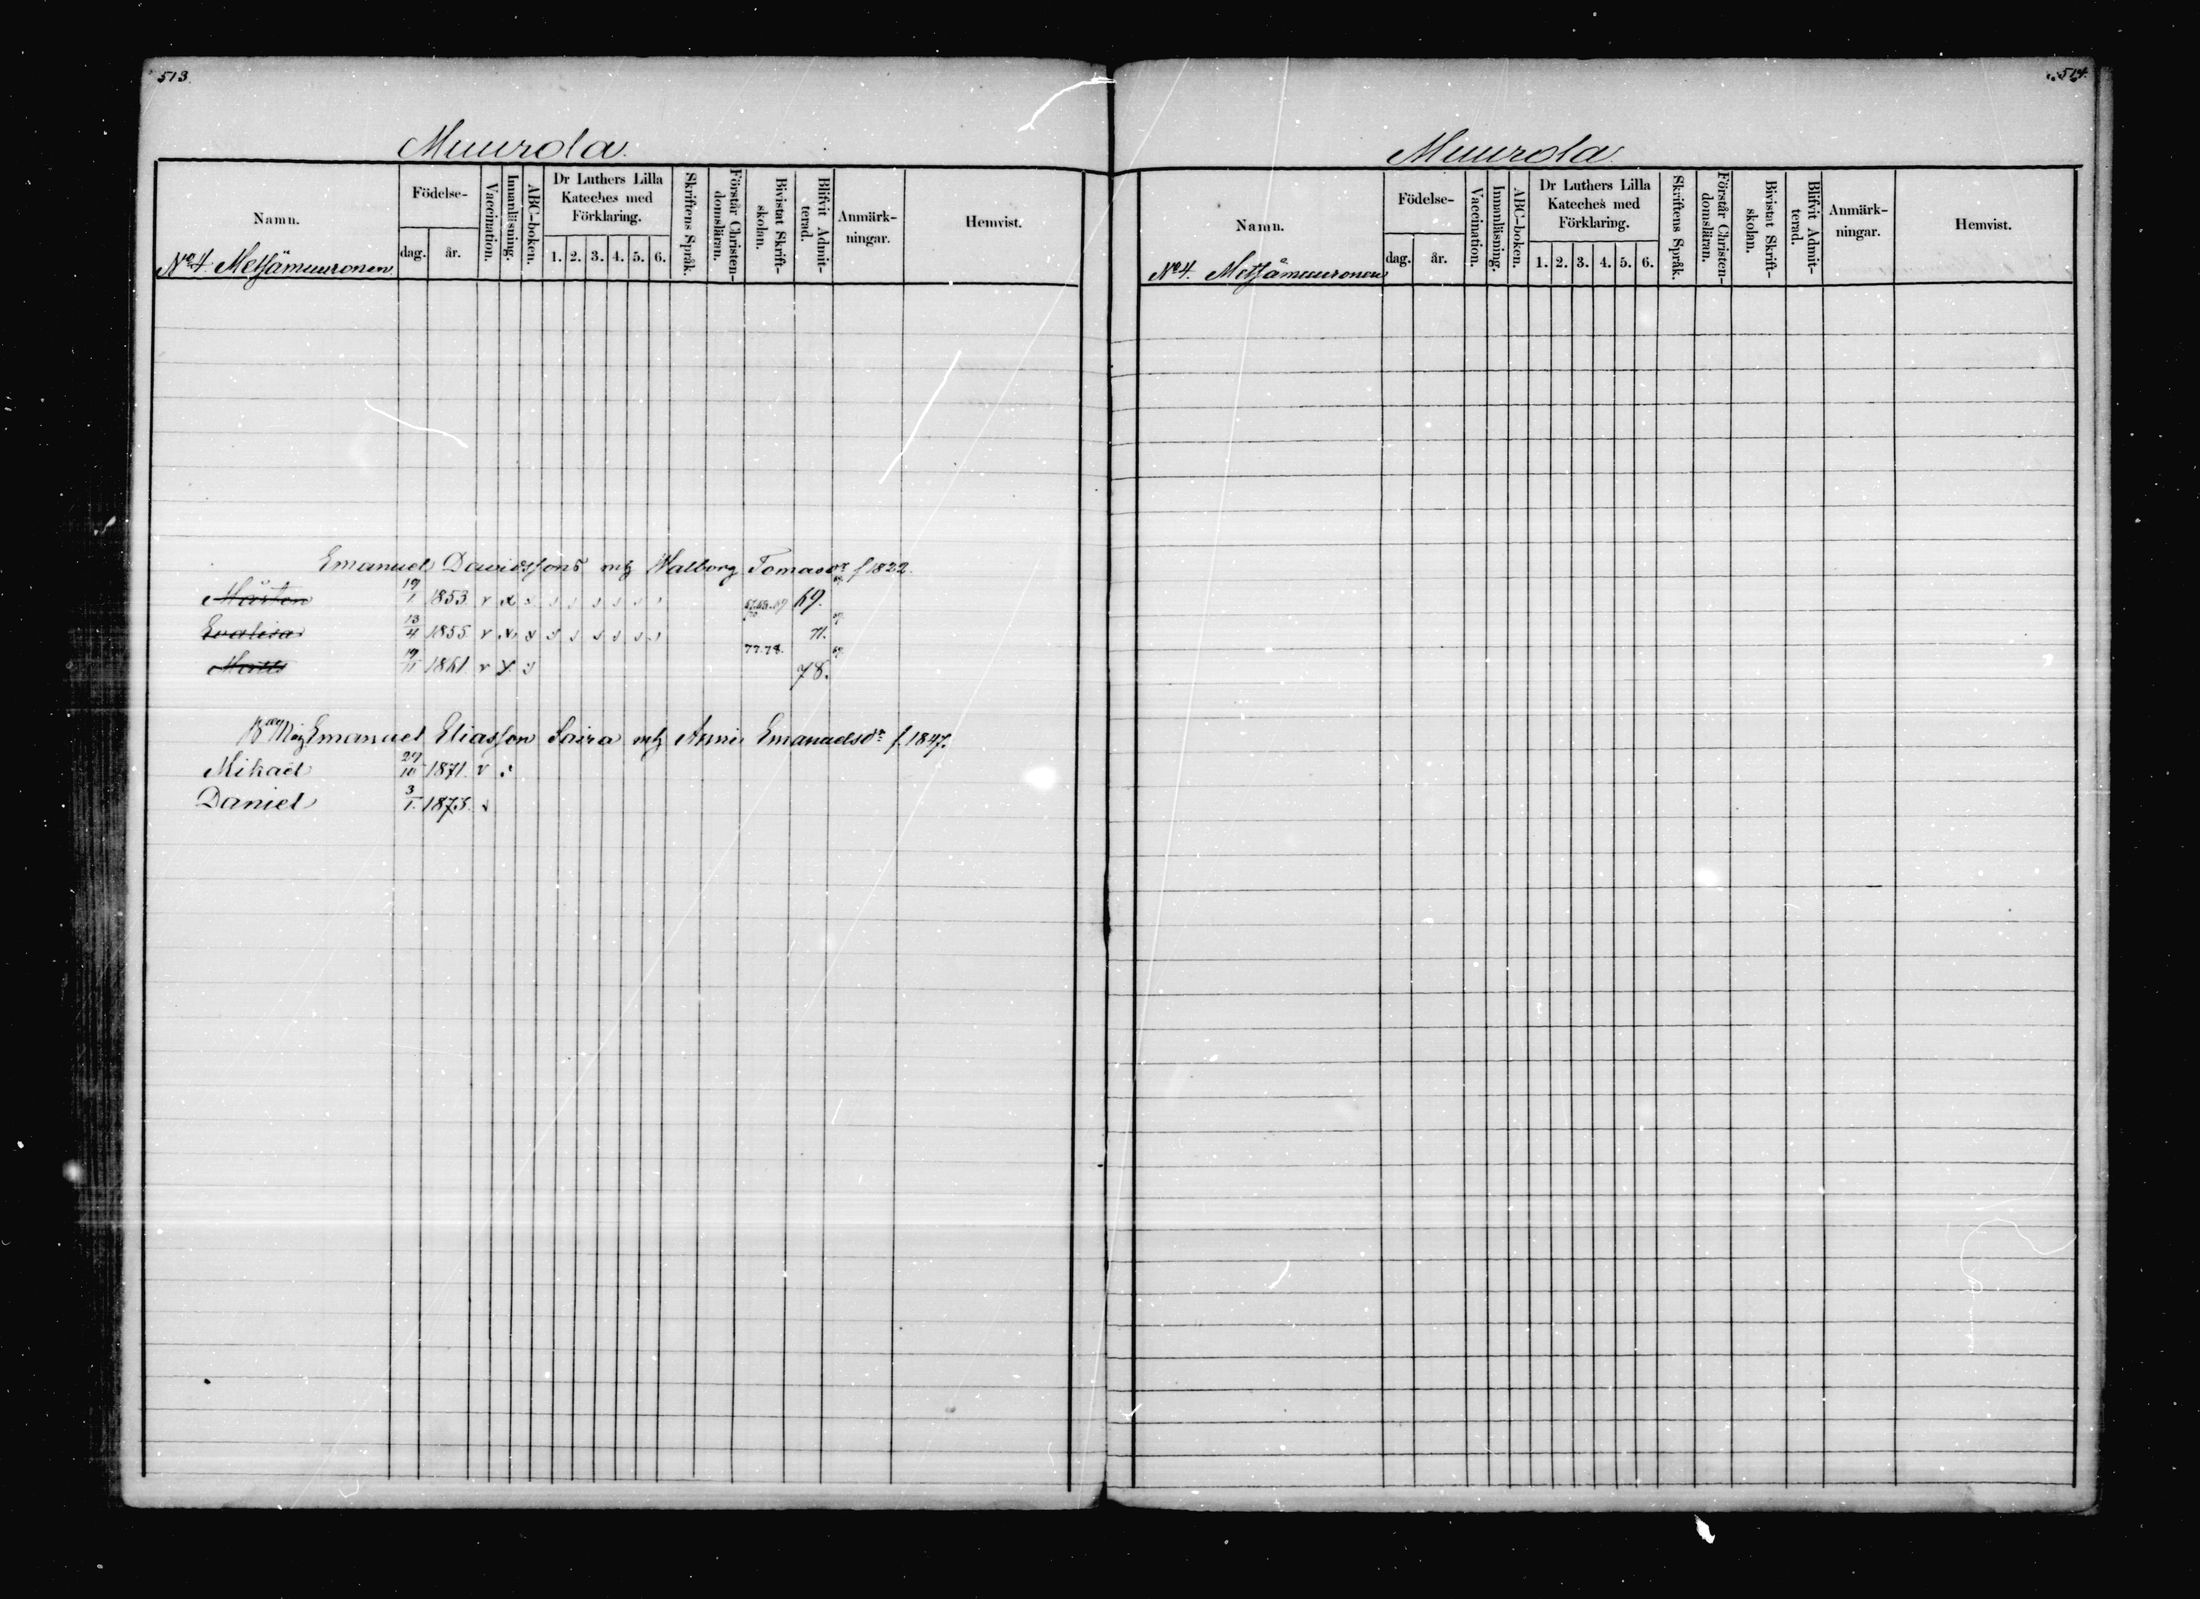 513.
Muurola.
Namn.
Födelse-
dag.
år.
Vaccination.
Innanläsning.
ABC-boken.
Dr Luthers Lilla
Kateches med
Förklaring.
1. 2. 3. 4. 5. 6.
Skriftens Språk.
Förstår Christen-
domsläran.
Bivistat Skrift-
skolan.
Blifvit Admit-
terad.
Anmärk-
ningar.
Hemvist.
No 4. Metsämuuronen
Emanuel Davidssons mh Walborg Tomasdr f 1822.
Mårten 19/1 1853. v x 69.
Evalisa 13/4 1855 v x 71.
Matts 19/11 1861. v x 77.78. 78.
Emanuel Eliasson Saira mh Anni Emanuelsdr f. 1847.
Mikael 29/10 1871. v
Daniel 3/1. 1873.
514.
Muurola
Namn.
Födelse-
dag.
år.
Vaccination.
Innanläsning.
ABC-boken.
Dr Luthers Lilla
Kateches med
Förklaring.
1. 2. 3. 4. 5. 6.
Skriftens Språk.
Förstår Christen-
domsläran.
Bivistat Skrift-
skolan.
Blifvit Admit-
terad.
Anmärk-
ningar.
Hemvist.
No 4. Metsämuuronen